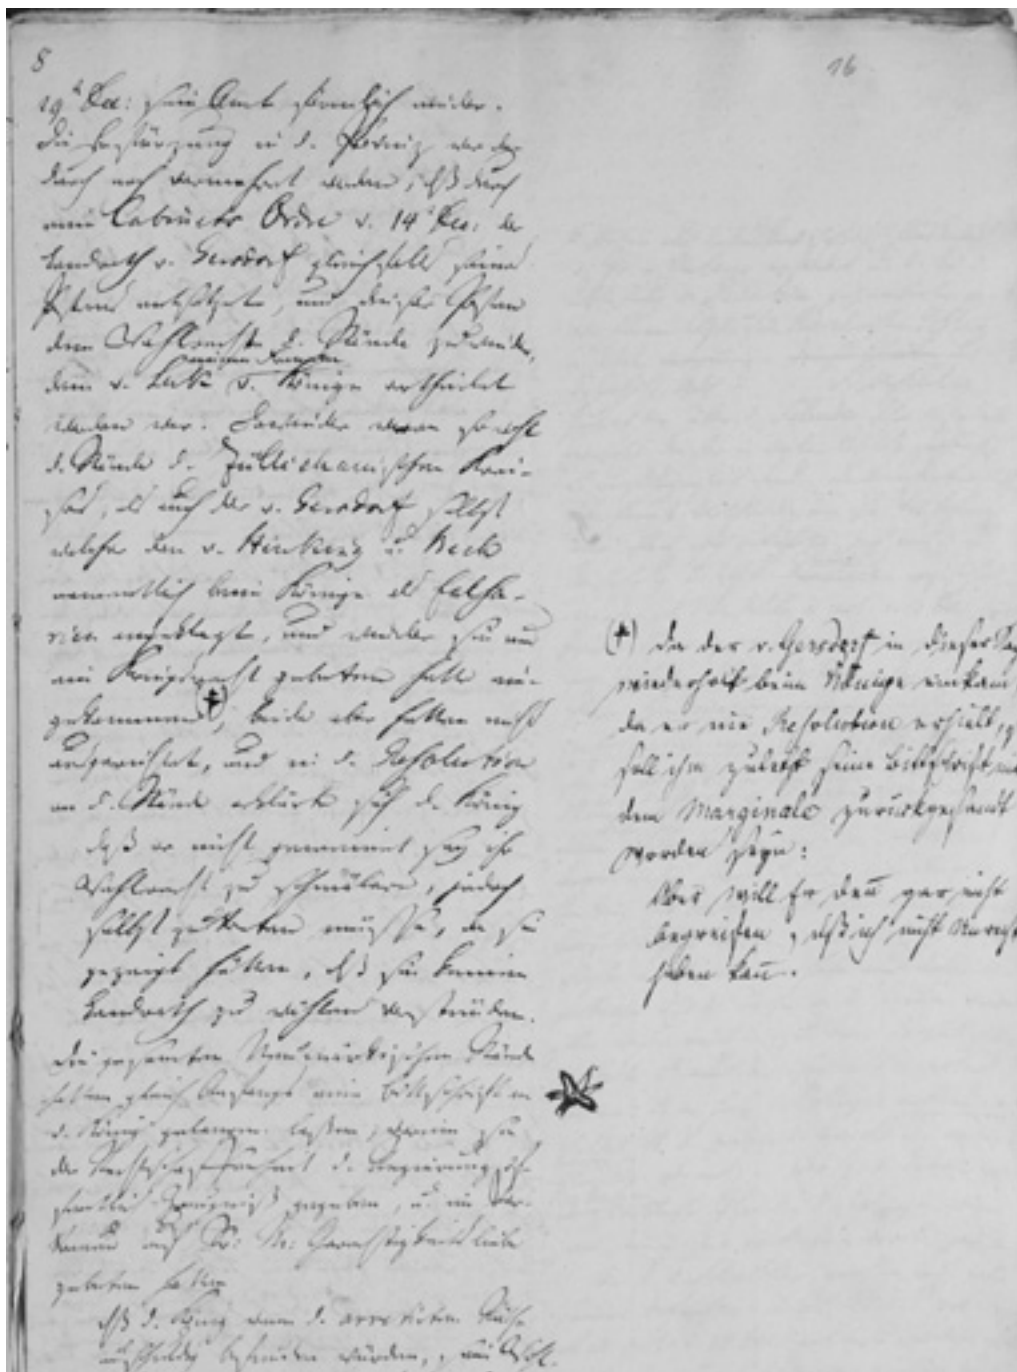 8
16
19t Dec: sein Amt förmlich nieder.
Die Bestürzung in d. Provinz war da
durch noch vermehrt worden, dß durch
eine Cabinets Ordre v. 14t Dec: der
Landrath v. Gersdorf gleichfalls seines
Postens entsetzt, und dieser Posten
dem Wahlrechte d. Stände zuwider,
dem v. v. Könige ertheilet
worden war. waren sowohl
d. Stände d. Züllichauischen Krei-
ses, als auch der v. Gersdorf selbst
welcher den v. u.
beim Könige als Falsa-
rien angeklagt, und wider sie um
ein Kriegsrecht gebeten hatte ein-
gekommen (+), beide aber hatten nichts
ausgerichtet, und in d. Resolution
an d. Stände erklärte sich d. König
daß er nicht gemeint sey ihr
Wahlrecht zu schmälern, jedoch
selbst müsse, da sie
gezeigt hätten, dß sie keinen
Landrath zu wählen verstünden.
Die gesamten Neumärkischen Stände
hatten gleich Anfangs eine Bittschrift an
d. König gelangen lassen, worin sie
der Rechtschaffenheit d. Regierung öf-
fentlich Zeugniß gegeben, u. im Ver-
trauen auf Sr: M: Gerechtigkeitsliebe
gebeten hatten
dß d. König wenn d. arretirten Räthe
unschuldig befunden würden,
(+) Da der v. Gersdorf in dieser
wiederholt beim Könige einkam
da er nie Resolution erhielt,
soll ihm zuletzt seine Bittschrift
dem Marginale zurückgesandt
worden seyn:
Aber will Er deñ gar nicht
begreifen, dß ich nicht Unrecht
haben kañ.